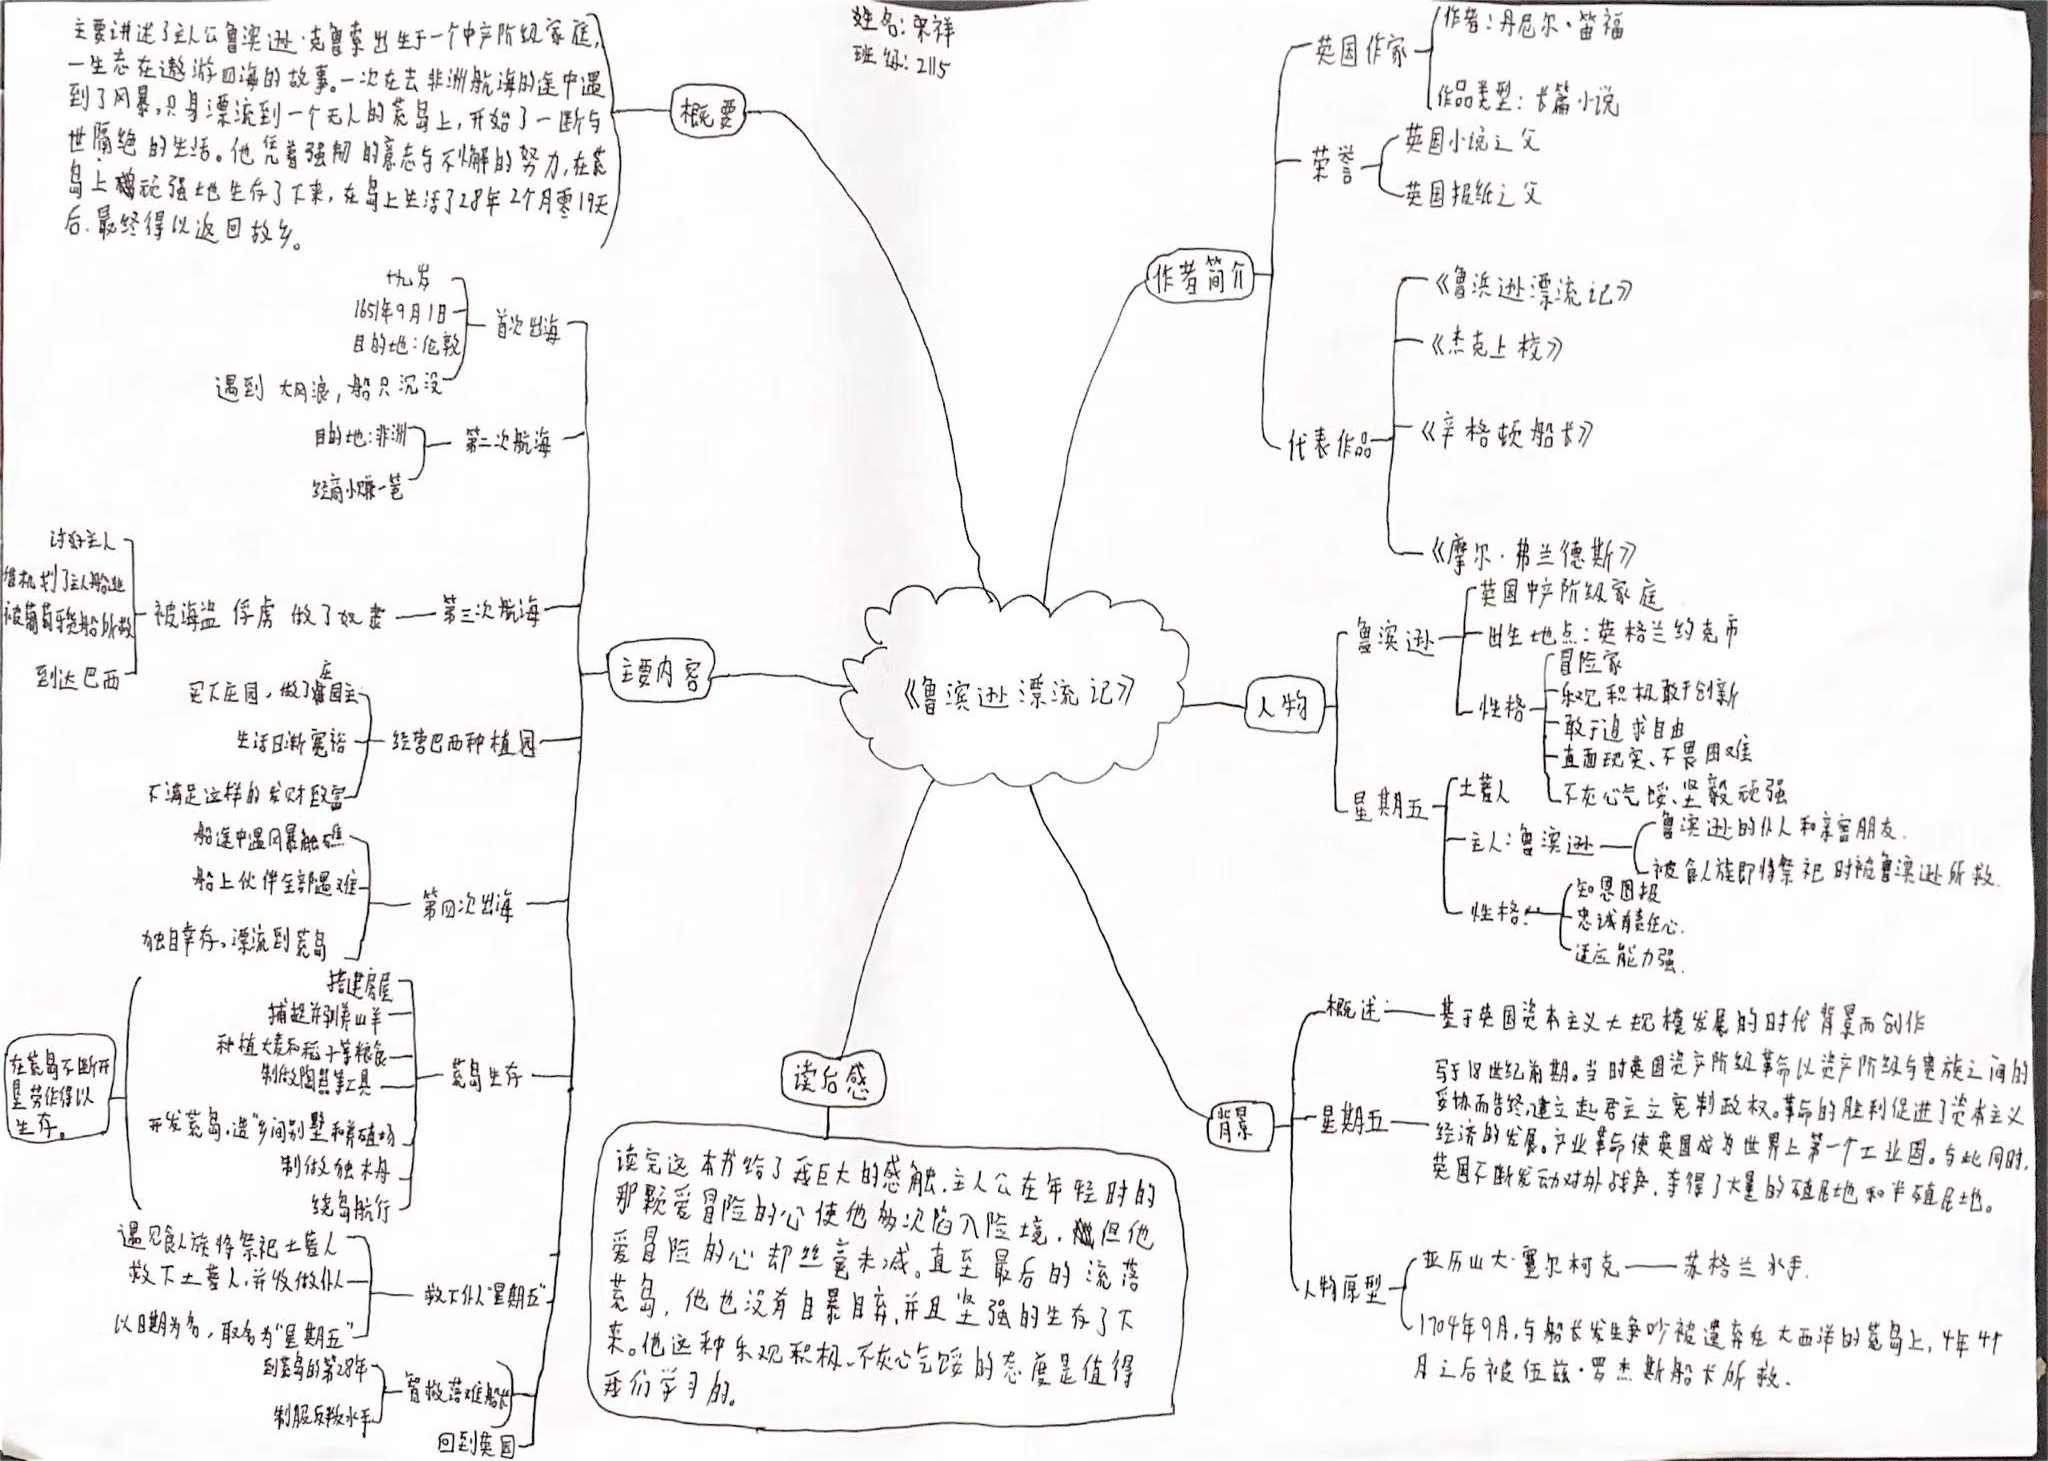 姓名：宋祥
班级：2115
《鲁滨逊漂流记》
概要
主要讲述了主人公鲁滨逊·克鲁索出生于一个中产阶级家庭，
一生志在遨游四海的故事。一次在去非洲航海的途中遇
到了风暴，只身漂流到一个无人的荒岛上，开始了一断与
世隔绝的生活。他凭着强韧的意志与不懈的努力，在荒
岛上顽强地生存了下来，在岛上生活了28年2个月零19天
后，最终得以返回故乡。
作者简介
英国作家
作者：丹尼尔·笛福
作品类型：长篇小说
荣誉
英国小说之父
英国报纸之父
代表作品
《鲁浜逊漂流记》
《杰克上校》
《辛格顿船长》
《摩尔·弗兰德斯》
人物
鲁滨逊
英国中产阶级家庭
出生地点：英格兰约克市
性格
冒险家
乐观积极敢于创新
敢于追求自由
直面现实、不畏困难
不灰心气馁、坚毅顽强
星期五
土著人
主人：鲁滨逊
鲁滨逊的仆人和亲密朋友.
被食人族即将祭祀时被鲁滨逊所救.
性格：
知恩图报
忠诚有责任心.
适应能力强.
背景
概述：
基于英国资本主义大规模发展的时代背景而创作
星期五
写于18世纪前期。当时英国资产阶级革命以资产阶级与贵族之间的
妥协而告终，建立起君主立宪制政权。革命的胜利促进了资本主义
经济的发展。产业革命使英国成为世界上第一个工业国。与此同时，
英国不断发动对外战争，夺得了大量的殖民地和半殖民地。
人物原型
亚历山大·塞尔柯克——苏格兰水手.
1704年9月，与船长发生争吵被遗弃在大西洋的荒岛上，4年4个
月之后被伍兹·罗杰斯船长所救.
主要内容
首次出海
十九岁
1651年9月1日
目的地：伦敦
遇到大风浪，船只沉没
第二次航海
目的地：非洲
经商小赚一笔
第三次航海
被海盗俘虏 做了奴隶
讨好主人
借机划了主人船逃
被葡萄牙货船所救
到达巴西
经营巴西种植园
买下庄园，做了庄园主
生活日渐宽裕
不满足这样的发财致富
第四次出海
船途中遇风暴触礁
船上伙伴全部遇难
独自幸存，漂流到荒岛
荒岛生存
搭建房屋
捕捉并驯养山羊
种植大麦和稻子等粮食
制做陶器等工具
开发荒岛，造“乡间别墅和养殖场
制做独木舟
绕岛航行
在荒岛不断开
垦劳作得以
生存。
救下仆人“星期五”
遇见食人族将祭祀土著人
救下土著人，并收做仆人
以日期为名，取名为“星期五”
智救落难船长
到荒岛的第28年
制服反叛水手
回到英国
读后感
读完这本书给了我巨大的感触，主人公在年轻时的
那颗爱冒险的心使他多次陷入险境，但他
爱冒险的心却丝毫未减。直至最后的流落
荒岛，他也没有自暴自弃，并且坚强的生存了下
来。他这种乐观积极、不灰心气馁的态度是值得
我们学习的。